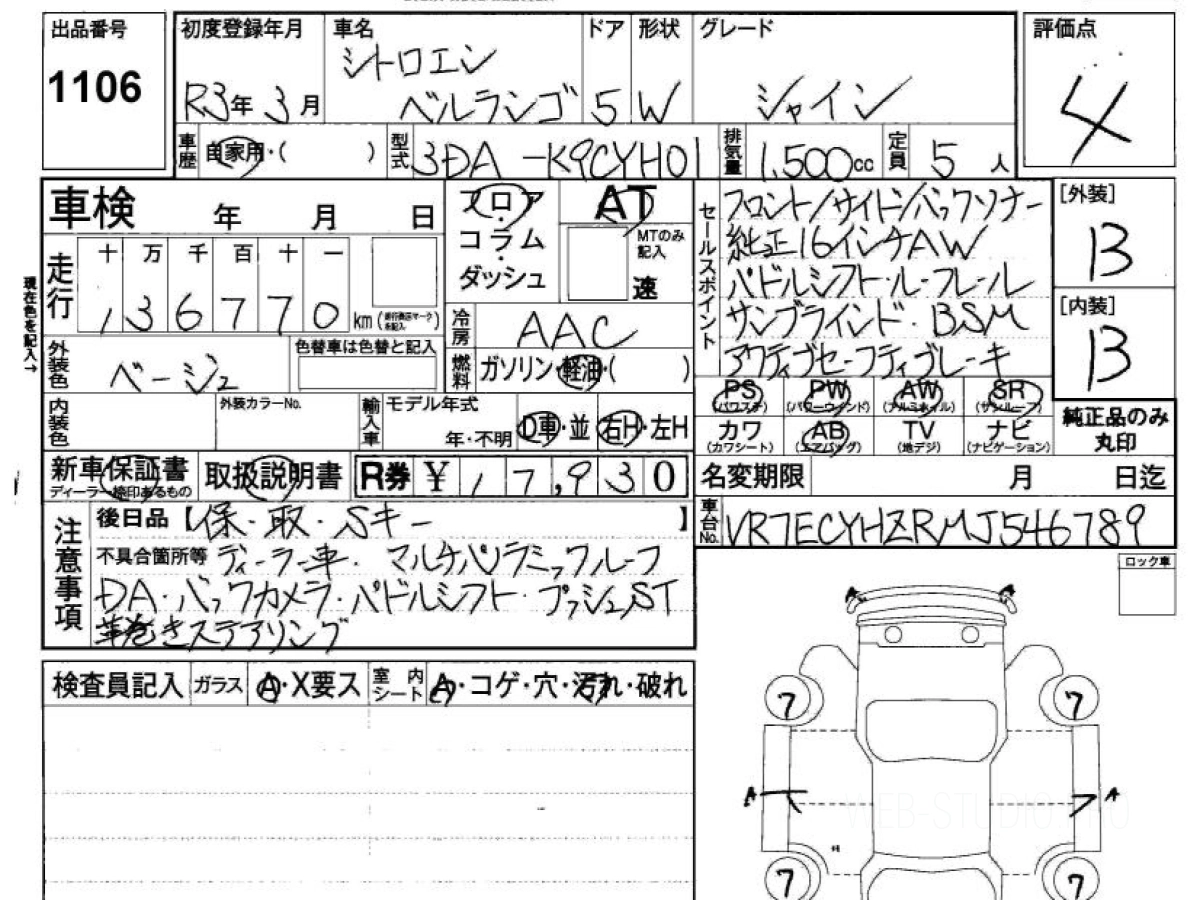 出品番号
1106
初度登録年月
R3年 3月
車名
シトロエン
ベルランゴ
ドア
5
形状
W
グレード
シャイン
評価点
4
車歴
自家用・( )
型式
3DA-K9CYH01
排気量
1,500cc
定員
5人
車検 年 月 日
フロア・コラム・ダッシュ
AT
MTのみ記入
速
セールスポイント
フロント/サイド/バックソナー
純正16インチAW
パドルシフト・ルーフレール
サンブラインド・BSM
アクティブセーフティブレーキ
[外装]
B
[内装]
B
現在色を記入→
走行
十 万 千 百 十 一
136770
km
冷房
AAC
外装色
ベージュ
色替車は色替と記入
燃料
ガソリン・軽油・( )
内装色
外装カラーNo.
輸入車
モデル年式
年・不明
D車・並
右H・左H
PS (パワステ)
PW (パワーウインド)
AW (アルミホイル)
SR (サンルーフ)
カワ (カワシート)
AB (エアバッグ)
TV (地デジ)
ナビ (ナビゲーション)
純正品のみ
丸印
新車保証書
ディーラー捺印あるもの
取扱説明書
R券 ¥ 17,930
名変期限 月 日迄
車台No.
VR7ECYHZRMJ546789
注意事項
後日品【保・取・Sキー 】
不具合箇所等 ディーラー車・マルチパノラミックルーフ
DA・バックカメラ・パドルシフト・プッシュST
革巻きステアリング
ロック車
検査員記入
ガラス
A・X要ス
室内シート
A・コゲ・穴・汚れ・破れ
A A
7 7
A A
WEB-STUDIO.PRO
7 7